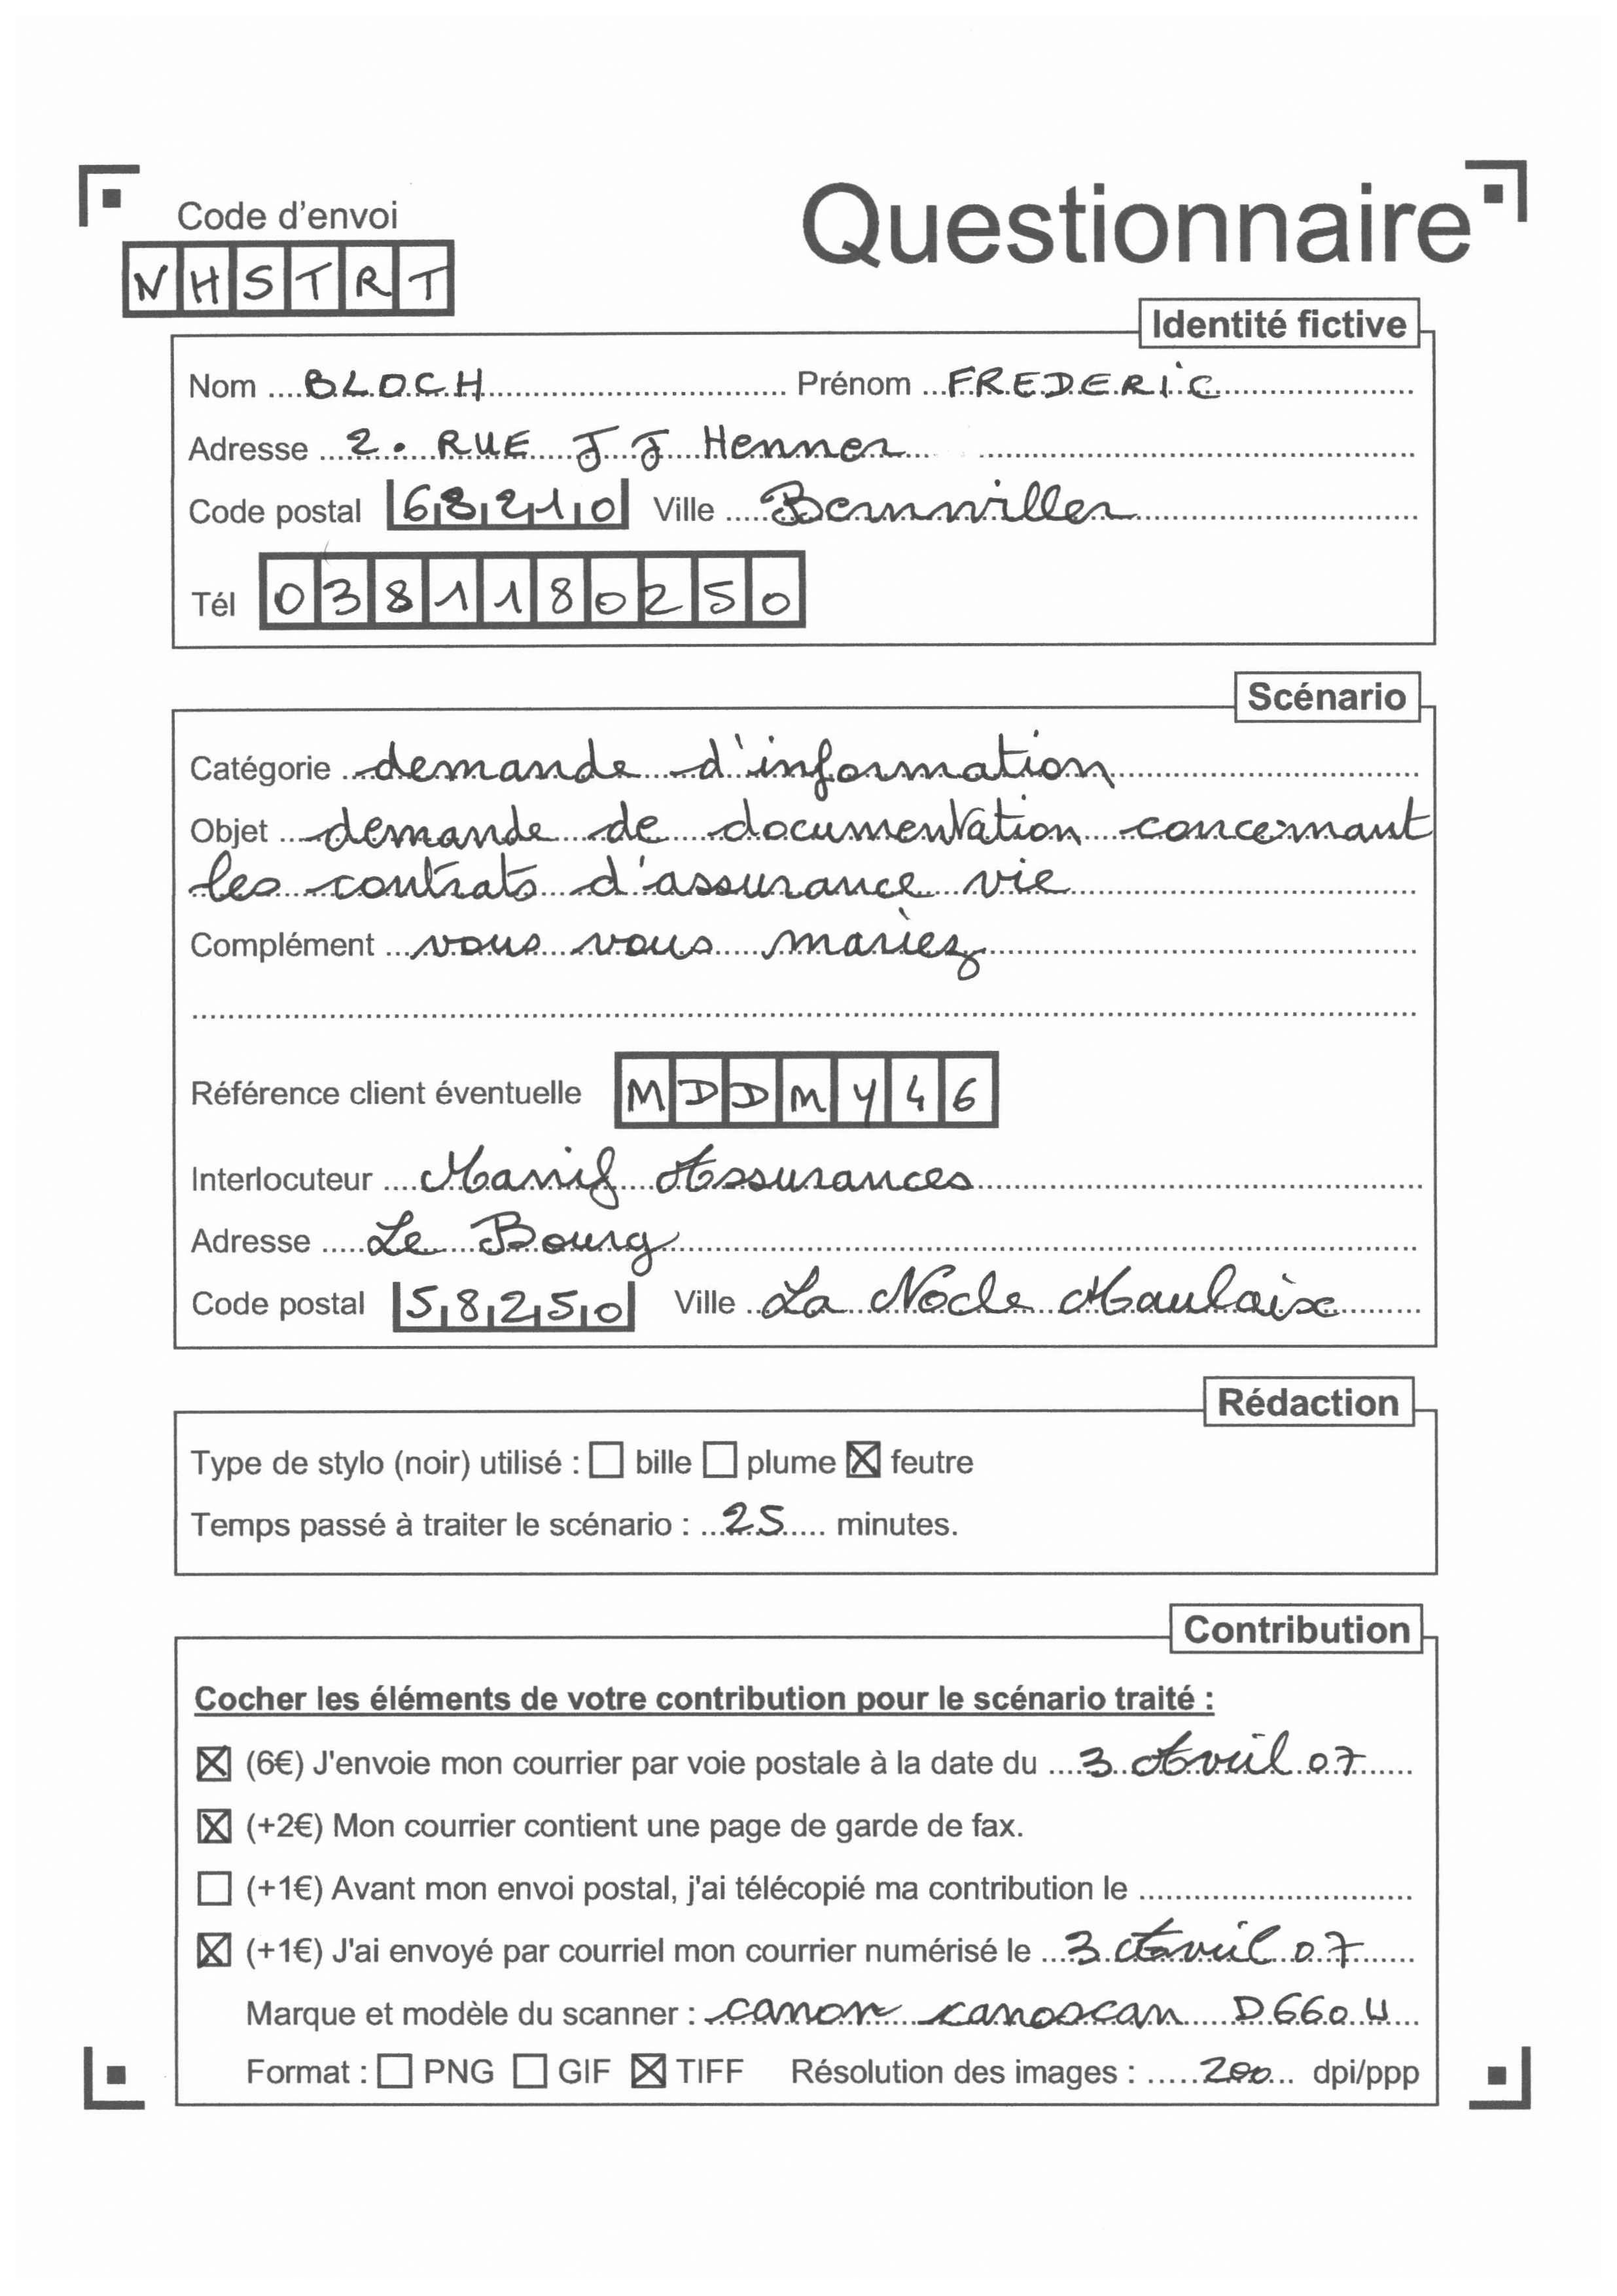 Code d'envoi
Questionnaire
NHSTRT
Identité fictive
Nom BLOCH Prénom FREDERIC
Adresse 2. RUE J J Henner
Code postal 68210 Ville Bernwiller
Tél 0381180250
Scénario
Catégorie demande d'information
Objet demande de documentation concernant
les contrats d'assurance vie
Complément vous vous mariez
Référence client éventuelle MDDMY46
Interlocuteur Manif Assurances
Adresse Le Bourg
Code postal 58250 Ville La Nocle Maulaix
Rédaction
Type de stylo (noir) utilisé : ☐ bille ☐ plume ☒ feutre
Temps passé à traiter le scénario : 25 minutes.
Contribution
Cocher les éléments de votre contribution pour le scénario traité :
☒ (6€) J'envoie mon courrier par voie postale à la date du 3 Avril 07
☒ (+2€) Mon courrier contient une page de garde de fax.
☐ (+1€) Avant mon envoi postal, j'ai télécopié ma contribution le
☒ (+1€) J'ai envoyé par courriel mon courrier numérisé le 3 Avril 07
Marque et modèle du scanner : canon canoscan D660 U
Format : ☐ PNG ☐ GIF ☒ TIFF Résolution des images : 200 dpi/ppp